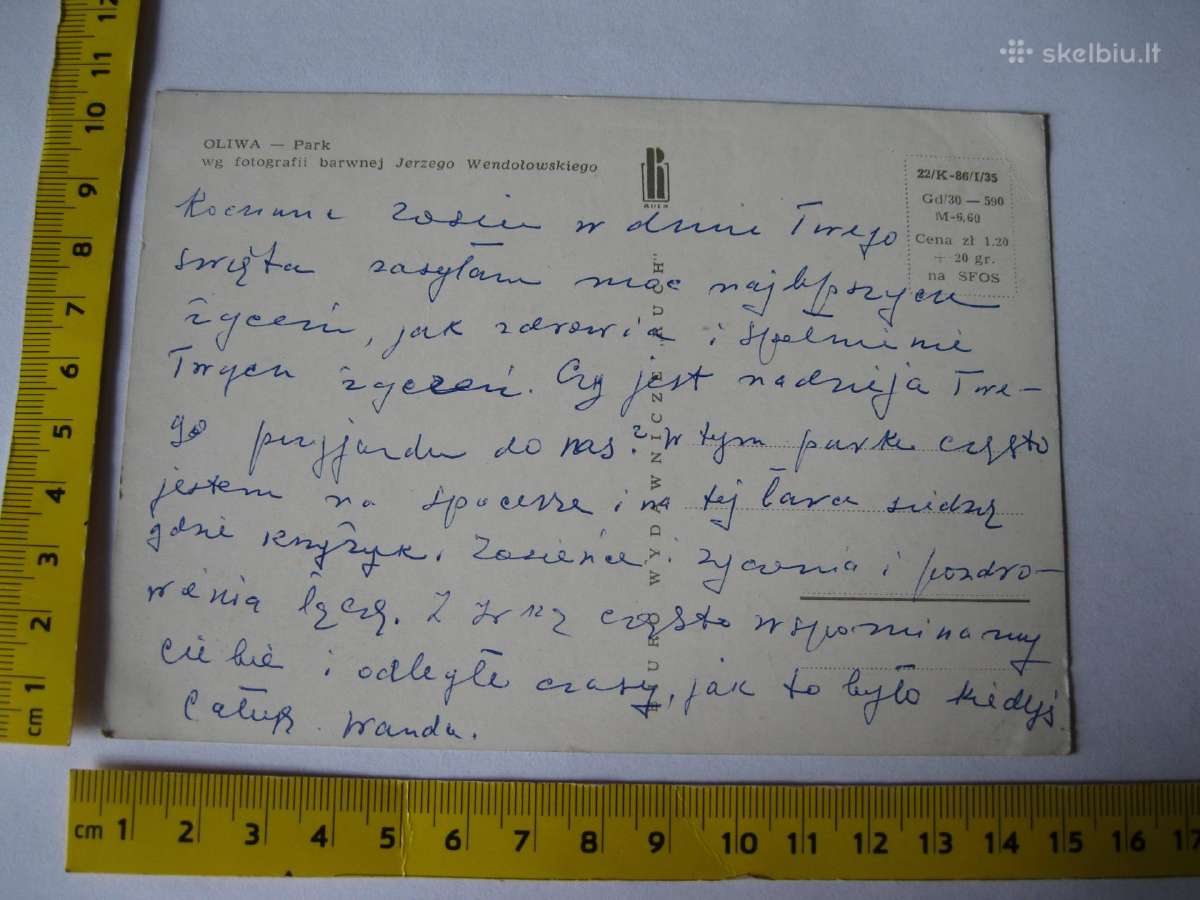 skelbiu.lt
OLIWA — Park
wg fotografii barwnej Jerzego Wendołowskiego
RUCH
22/K-86/I/35
Gd/30 — 590
M-6,60
Cena zł 1.20
+ 20 gr.
na SFOS
BIURO WYDAWNICZE "RUCH"
Kochana Zosiu w dniu Twego
święta zasyłam moc najlepszych
życzeń, jak zdrowia i spełnienie
Twych życzeń. Czy jest nadzieja Twe-
go przyjazdu do nas? W tym parku często
jestem na spacerze i na tej ława siedzę
gdzie krzyżyk. Zosieńce życzenia i pozdro-
wienia łączę. Z często wspominamy
ciebie i odległe czasy, jak to było kiedyś
Całuję Wanda.
12
11
10
9
8
7
6
5
4
3
2
1
cm
cm 1 2 3 4 5 6 7 8 9 10 11 12 13 14 15 16 17